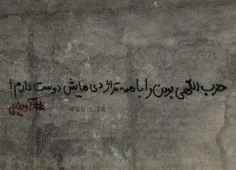 حزب اللهی بودن را با همه تراژدی هایش دوست دارم!
#آوینی